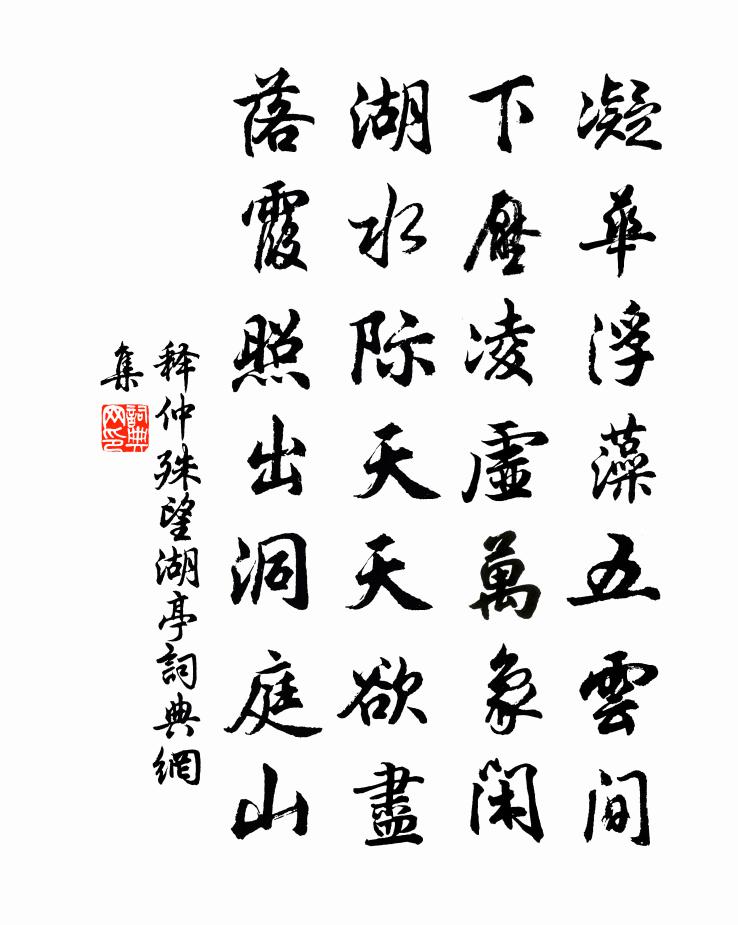 凝華浮藻五雲間
下壓凌虛萬象閑
湖水际天天欲盡
落霞照出洞庭山
释仲殊望湖亭詞典網
集
詞典网印